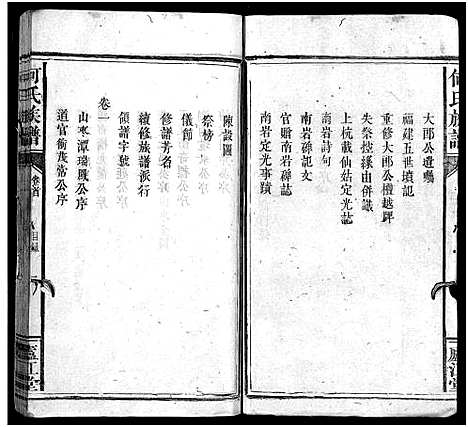 何氏族譜
廬江堂
大郎公遺囑
福建五世墳記
重修大郎公檀越牌
失祭控縣由併議
上杭載仙姑定光誌
南岩詩句
南岩碑記文
官贈南岩碑誌
南岩定光事蹟
陳設圖
祭榜
儀節
修譜芳名
續修族譜派行
領譜字號
卷一
山棗潭瑞鳳公序
道官衡茂常公序
何氏族譜
卷首
目錄
廬江堂